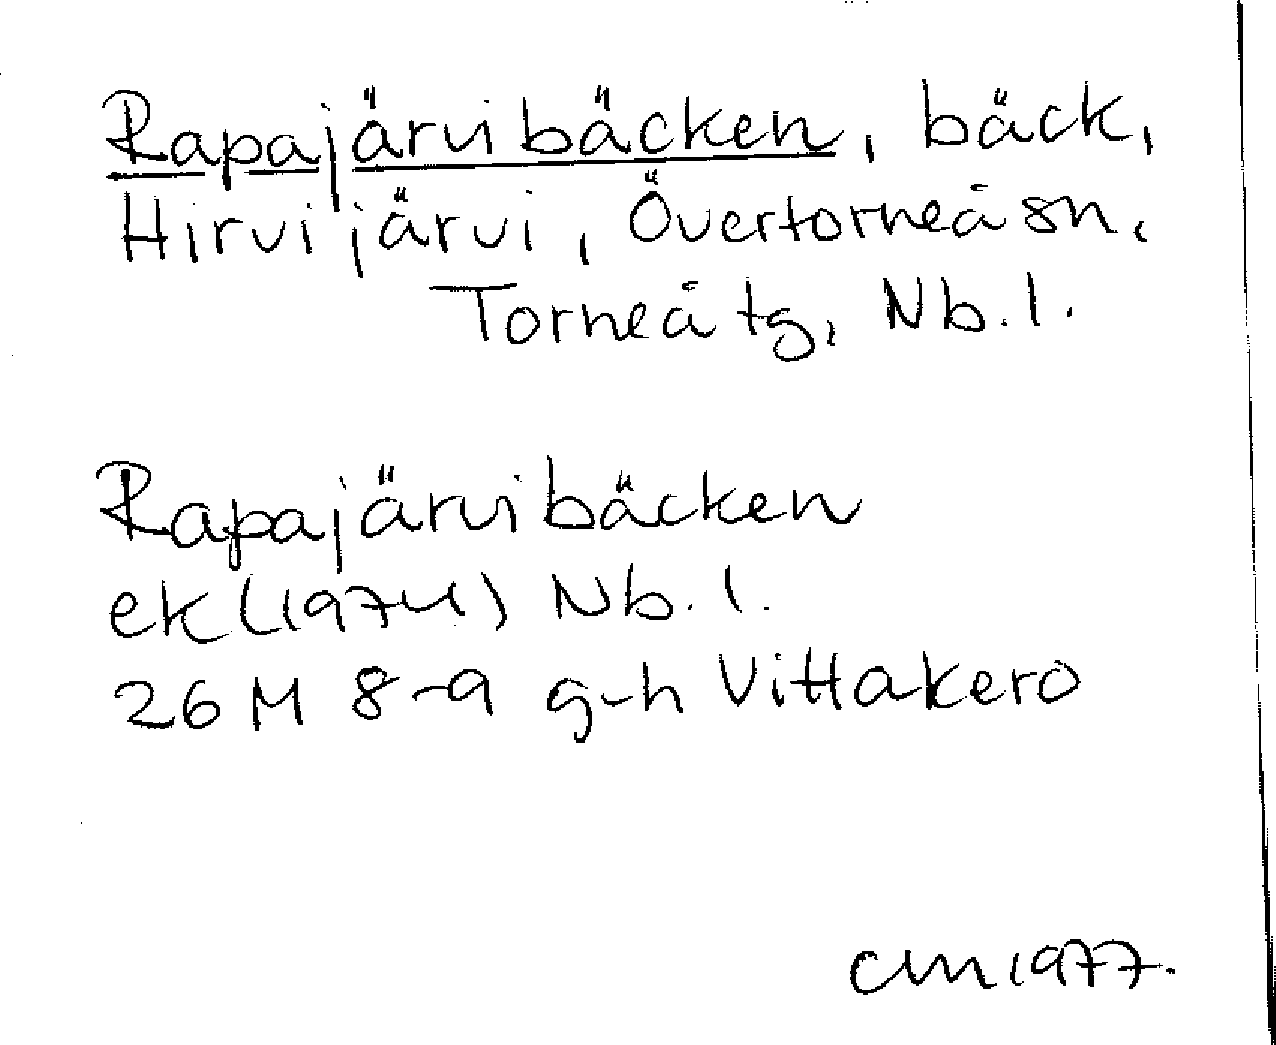 Rapajärvibäcken, bäck,
Hirvijärvi, Övertorneå sn,
Torneå tg, Nb. l.
Rapajärvibäcken
ek (1974) Nb. l.
26 M 8-9 g-h Vittakero
CM 1977.